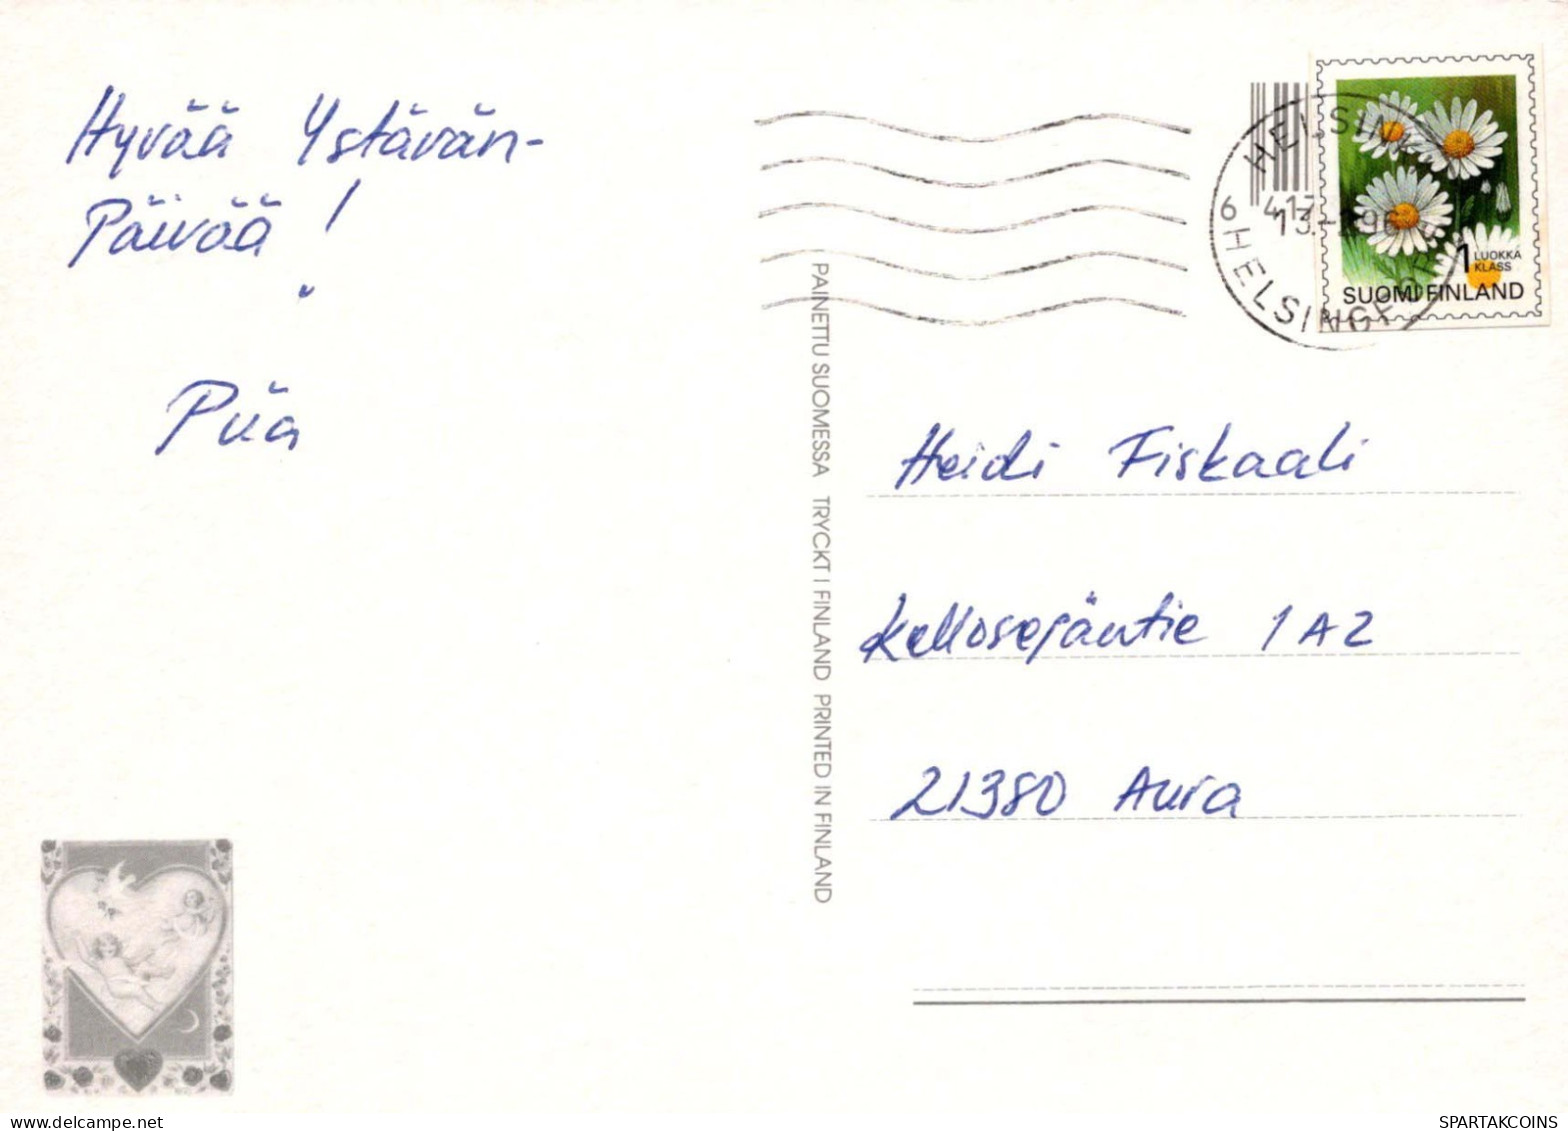 Hyvää Ystävän-
Päivää!
Piia
PAINETTU SUOMESSA TRYCKT I FINLAND PRINTED IN FINLAND
HELSINKI
6 HELSINGFORS
1 LUOKKA
KLASS
SUOMI FINLAND
Heidi Fiskaali
Kellosepäntie 1 A 2
21380 Aura
SPARTAKCOINS